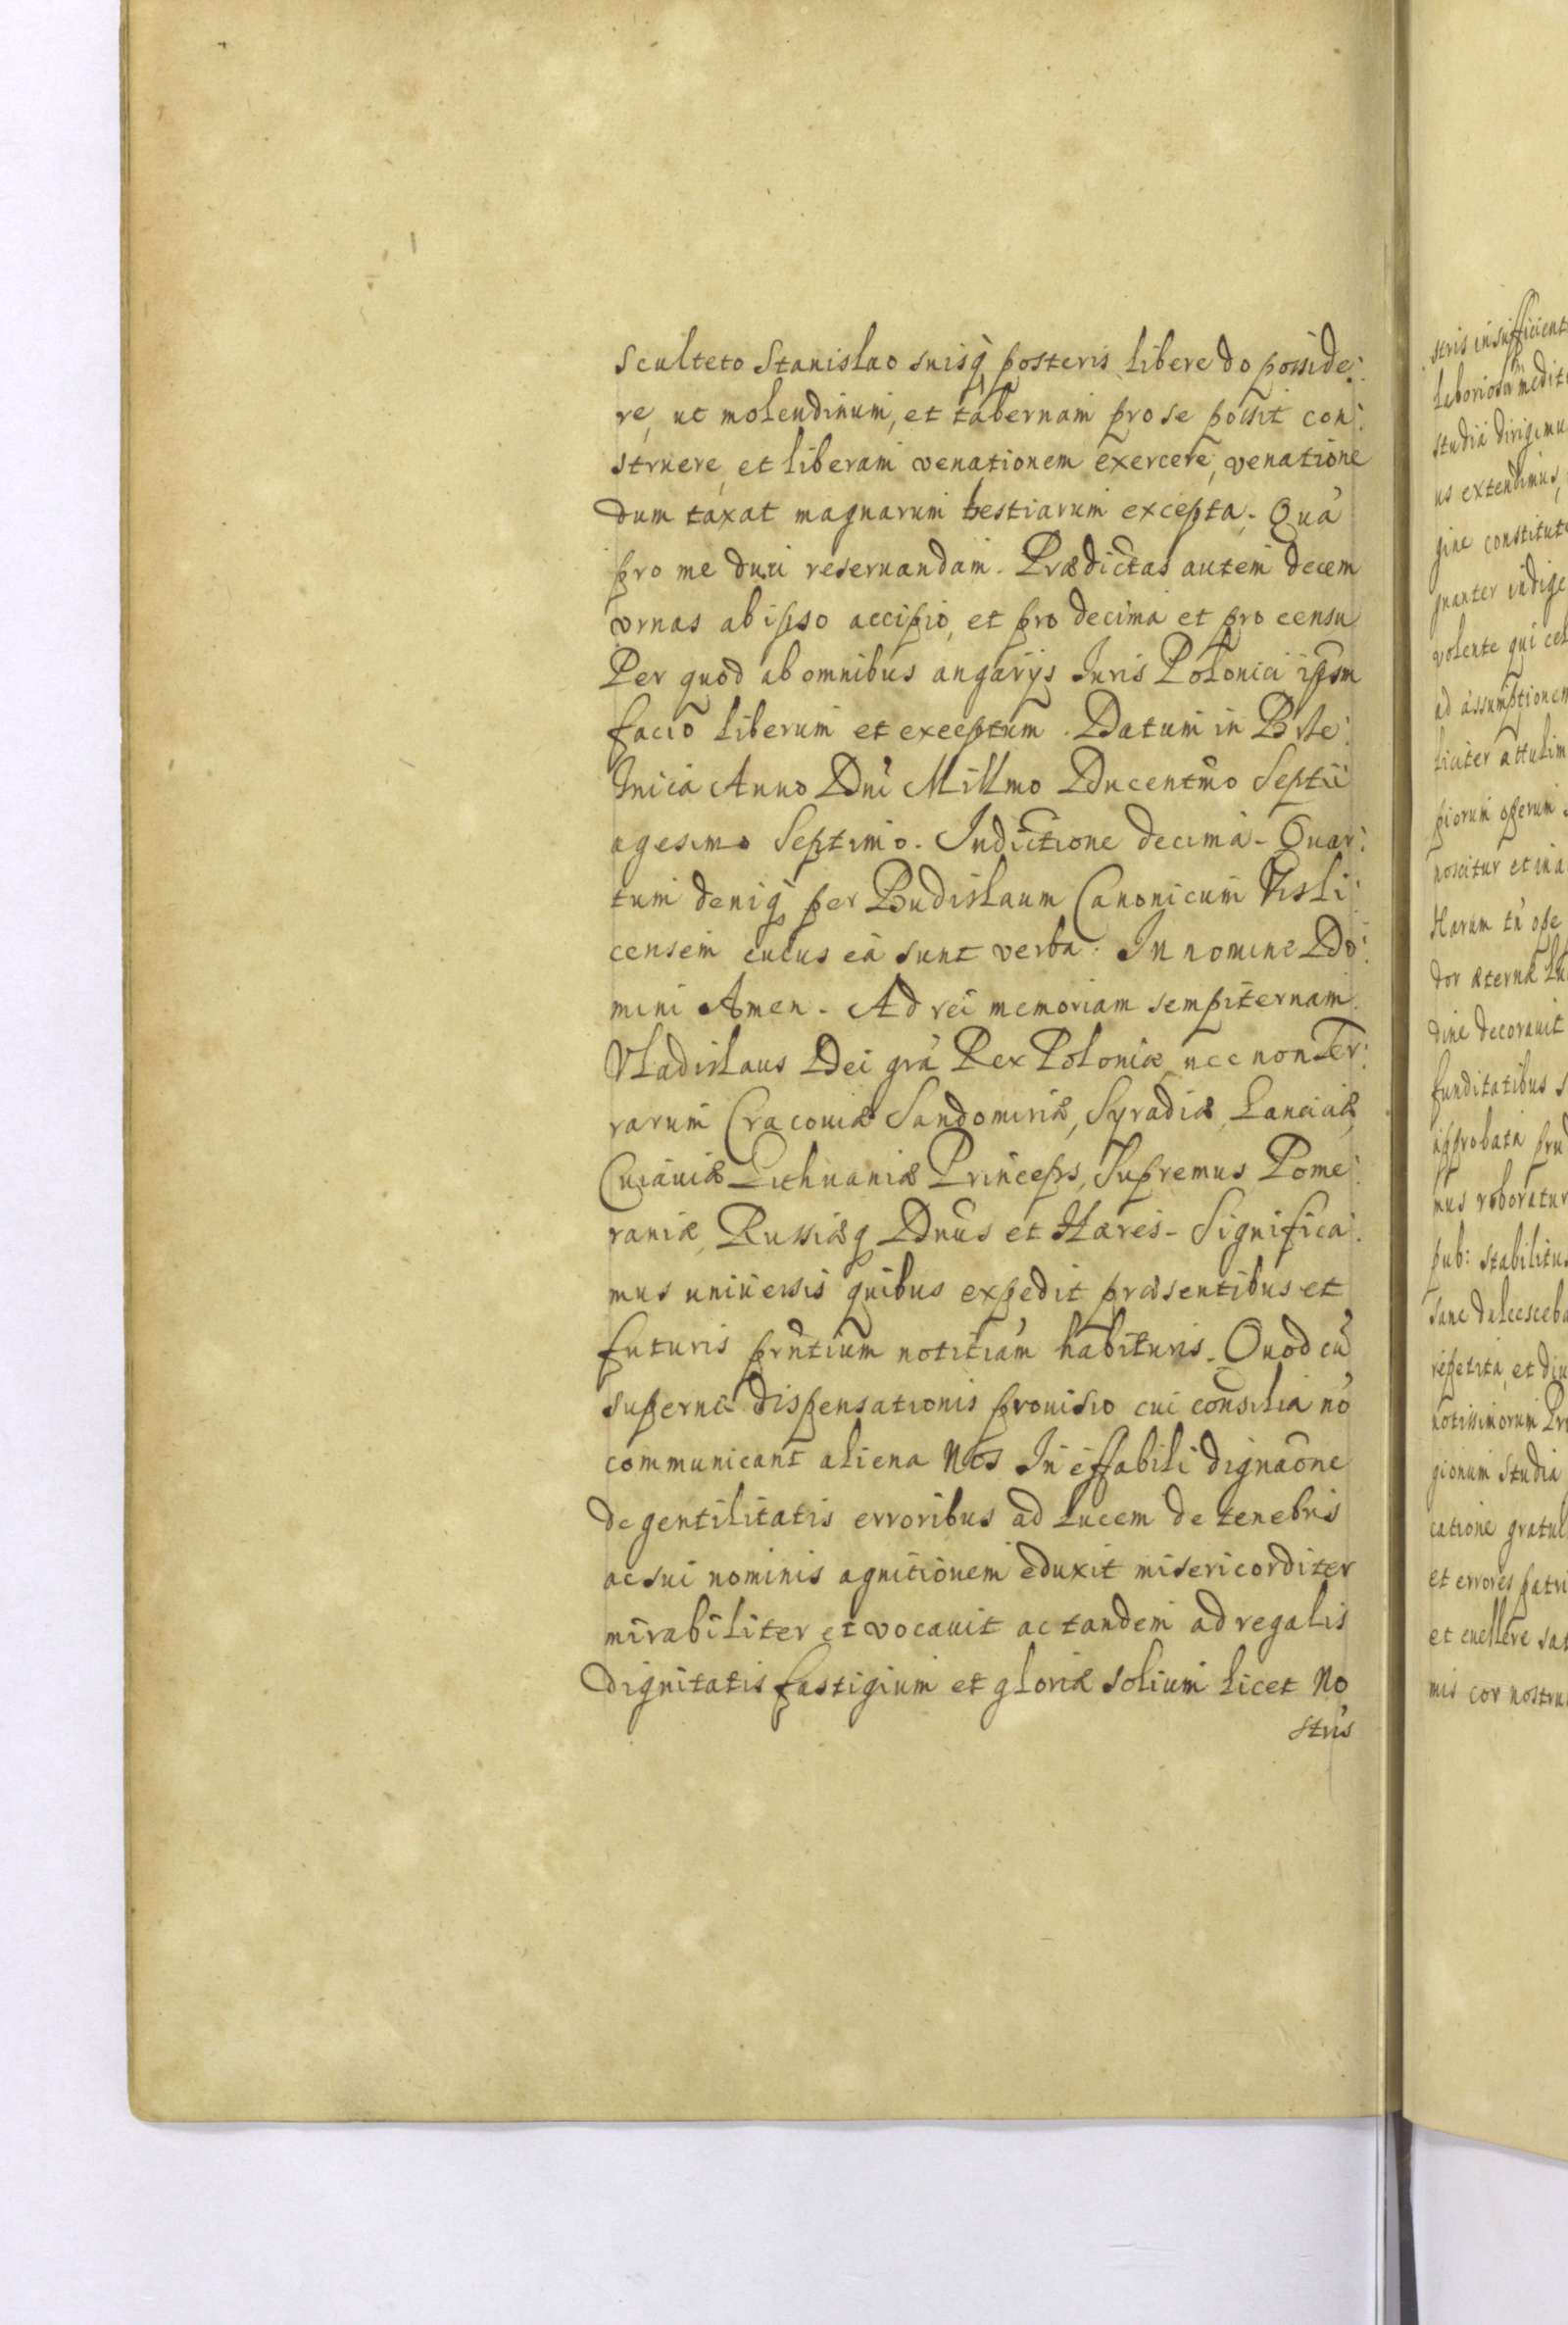 Sculteto Stanislao suisq posteris libere do posside:
re, ut molendinum, et tabernam pro se possit con:
struere, et liberam venationem exercere, venatione
dum taxat magnarum bestiarum excepta. Quá
pro me duci reseruandam. Prædictas autem decem
vrnas ab ipso accipio, et pro decima et pro censu
Per quod ab omnibus angarijs Iuris Polonici ipsm
facio liberum et exceptum. Datum in
Anno Dni Millmo Ducentmo Septu
agesimo Septimo. Indictione decima. Quar:
tum deniq per Budislaum Canonicum Visli:
censem cuius ea sunt verba: In nomine Do:
mini Amen. Ad rei memoriam sempiternam
Vladislaus Dei grá Rex Poloniæ nec non Ter:
rarum Cracouiæ Sandomiriæ, Syradiæ, Lanciciæ,
Cuiauiæ Lithuaniæ Princeps, Supremus Pome:
raniæ, Russiæq Dnus et Hæres. Significa:
mus uniuersis quibus expedit præsentibus et
futuris prntium notitiam habituris. Quod cú
supernæ dispensationis prouisio cui consilia nó
communicant aliena Nos Ineffabili dignaone
de gentilitatis erroribus ad lucem de tenebris
ac sui nominis agnitionem eduxit misericorditer
mirabiliter et vocauit ac tandem ad regalis
dignitatis fastigium et gloriæ solium licet No
stris
stris insufficient
studia dirigimu
us extendimus,
gine constitut
gnanter indige
volente qui cel
ad assumptionem
liciter attulim
piorum operum
noscitur et in a
Harum tn ope
dor æternæ lu
dine decorauit
funditatibus s
approbata prud
mus roboratur
pub: stabilitus
sane dulcesceba
repetita, et diu
notissimorum Pri
gionum studia
catione gratul
et errores patri
et euellere sat
mis cor nostru